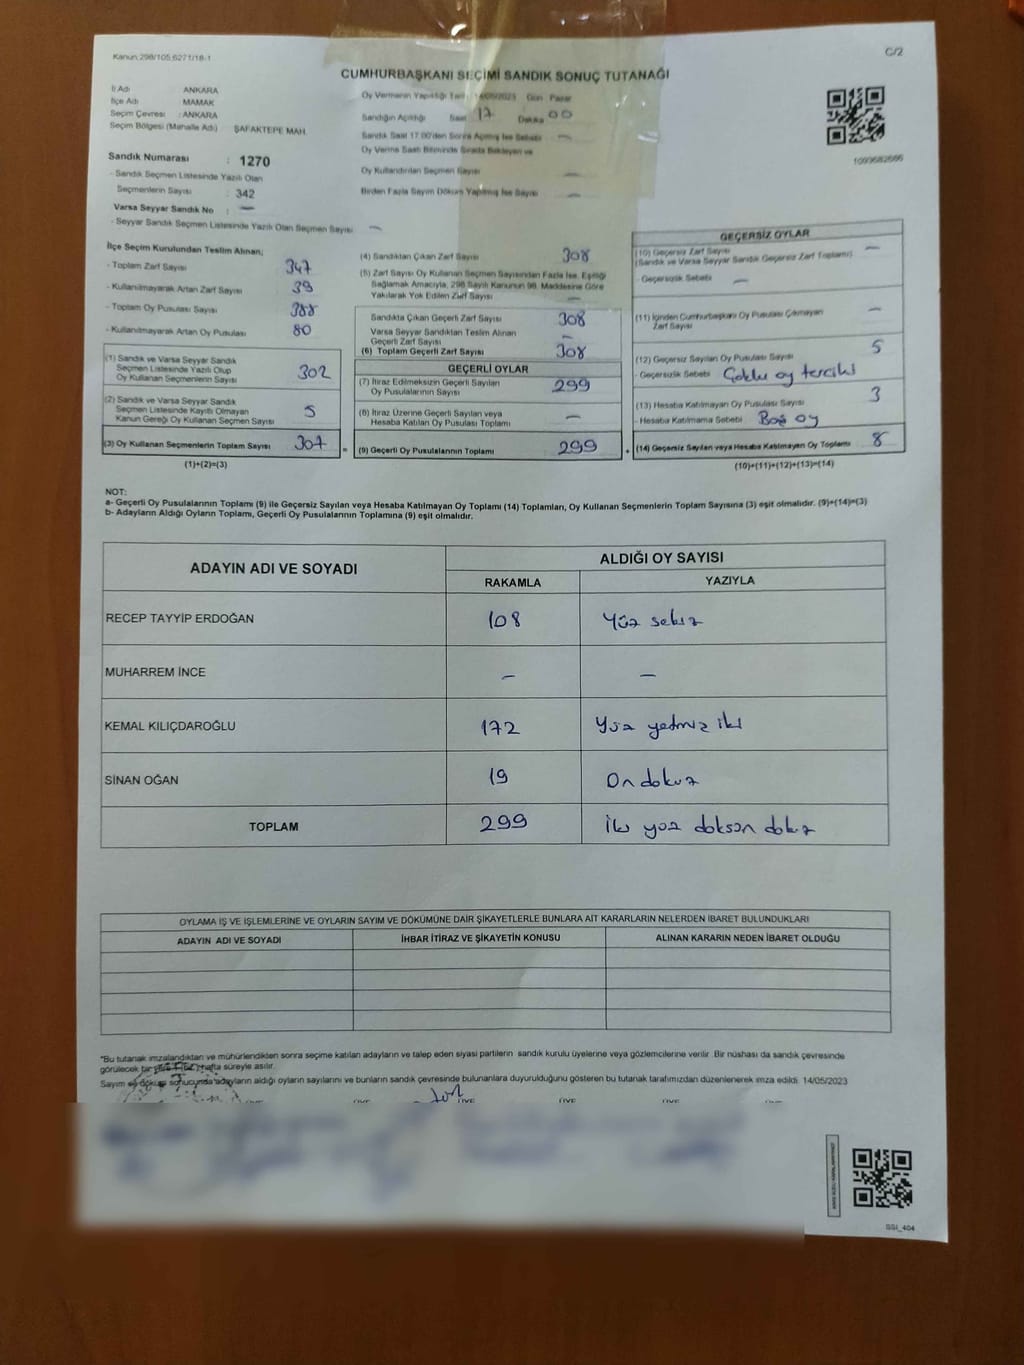 Kanun:298/105,6271/18-1
C/2
CUMHURBAŞKANI SEÇİMİ SANDIK SONUÇ TUTANAĞI
İl Adı ANKARA
İlçe Adı MAMAK
Seçim Çevresi : ANKARA
Seçim Bölgesi (Mahalle Adı) ŞAFAKTEPE MAH.
Oy Vermenin Yapıldığı Tarih 14/05/2023 Gün Pazar
Sandığın Açıldığı Saat 17 Dakika 00
Sandık Saat 17.00'den Sonra Açılmış İse Sebebi —
Oy Verme Saati Bitiminde Sırada Bekleyen ve
Oy Kullandırılan Seçmen Sayısı —
Birden Fazla Sayım Döküm Yapılmış İse Sayısı —
1093682666
Sandık Numarası : 1270
- Sandık Seçmen Listesinde Yazılı Olan
Seçmenlerin Sayısı : 342
Varsa Seyyar Sandık No : —
- Seyyar Sandık Seçmen Listesinde Yazılı Olan Seçmen Sayısı —
İlçe Seçim Kurulundan Teslim Alınan;
- Toplam Zarf Sayısı 347
- Kullanılmayarak Artan Zarf Sayısı 39
- Toplam Oy Pusulası Sayısı 388
- Kullanılmayarak Artan Oy Pusulası 80
(1) Sandık ve Varsa Seyyar Sandık
Seçmen Listesinde Yazılı Olup
Oy Kullanan Seçmenlerin Sayısı 302
(2) Sandık ve Varsa Seyyar Sandık
Seçmen Listesinde Kayıtlı Olmayan
Kanun Gereği Oy Kullanan Seçmen Sayısı 5
(3) Oy Kullanan Seçmenlerin Toplam Sayısı 307
(1)+(2)=(3)
(4) Sandıktan Çıkan Zarf Sayısı 308
(5) Zarf Sayısı Oy Kullanan Seçmen Sayısından Fazla İse, Eşitliği
Sağlamak Amacıyla, 298 Sayılı Kanunun 98. Maddesine Göre
Yakılarak Yok Edilen Zarf Sayısı —
Sandıkta Çıkan Geçerli Zarf Sayısı 308
Varsa Seyyar Sandıktan Teslim Alınan
Geçerli Zarf Sayısı —
(6) Toplam Geçerli Zarf Sayısı 308
GEÇERLİ OYLAR
(7) İtiraz Edilmeksizin Geçerli Sayılan
Oy Pusulalarının Sayısı 299
(8) İtiraz Üzerine Geçerli Sayılan veya
Hesaba Katılan Oy Pusulası Toplamı —
= (9) Geçerli Oy Pusulalarının Toplamı 299
GEÇERSİZ OYLAR
(10) Geçersiz Zarf Sayısı —
(Sandık ve Varsa Seyyar Sandık Geçersiz Zarf Toplamı)
- Geçersizlik Sebebi —
(11) İçinden Cumhurbaşkanı Oy Pusulası Çıkmayan
Zarf Sayısı —
(12) Geçersiz Sayılan Oy Pusulası Sayısı 5
- Geçersizlik Sebebi Çoklu oy tercihi
(13) Hesaba Katılmayan Oy Pusulası Sayısı 3
- Hesaba Katılmama Sebebi Boş oy
+ (14) Geçersiz Sayılan veya Hesaba Katılmayan Oy Toplamı 8
(10)+(11)+(12)+(13)=(14)
NOT:
a- Geçerli Oy Pusulalarının Toplamı (9) ile Geçersiz Sayılan veya Hesaba Katılmayan Oy Toplamı (14) Toplamları, Oy Kullanan Seçmenlerin Toplam Sayısına (3) eşit olmalıdır. (9)+(14)=(3)
b- Adayların Aldığı Oyların Toplamı, Geçerli Oy Pusulalarının Toplamına (9) eşit olmalıdır.
ADAYIN ADI VE SOYADI
ALDIĞI OY SAYISI
RAKAMLA YAZIYLA
RECEP TAYYİP ERDOĞAN 108 Yüz sekiz
MUHARREM İNCE — —
KEMAL KILIÇDAROĞLU 172 Yüz yetmiş iki
SİNAN OĞAN 19 On dokuz
TOPLAM 299 İki yüz doksan dokuz
OYLAMA İŞ VE İŞLEMLERİNE VE OYLARIN SAYIM VE DÖKÜMÜNE DAİR ŞİKAYETLERLE BUNLARA AİT KARARLARIN NELERDEN İBARET BULUNDUKLARI
ADAYIN ADI VE SOYADI İHBAR İTİRAZ VE ŞİKAYETİN KONUSU ALINAN KARARIN NEDEN İBARET OLDUĞU
"Bu tutanak imzalandıktan ve mühürlendikten sonra seçime katılan adayların ve talep eden siyasi partilerin sandık kurulu üyelerine veya gözlemcilerine verilir. Bir nüshası da sandık çevresinde
görülecek bir yere 1 (bir) hafta süreyle asılır.
Sayım ve döküm sonucunda adayların aldığı oyların sayılarını ve bunların sandık çevresinde bulunanlara duyurulduğunu gösteren bu tutanak tarafımızdan düzenlenerek imza edildi. 14/05/2023
ÜYE ÜYE ÜYE ÜYE
SSI_404